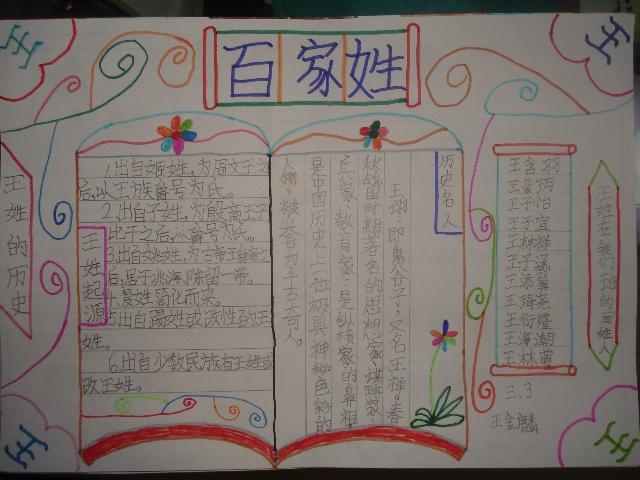 百家姓
王
王
王
王
王姓的历史
王姓起源
1.出自姬姓，为周文王之
后，以王族爵号为氏。
2.出自子姓，为殷商王子
比干之后，以爵号为氏。
3.出自妫姓，为古帝王舜帝之
后，居于北海、陈留一带。
4.复姓简化而来。
5.出自赐姓或改性的王
姓。
6.出自少数民族有王姓或
改王姓。
历史名人
王诩，即鬼谷子，又名王禅。春
秋战国时期著名的思想家、谋略家、
兵家、教育家，是纵横家的鼻祖，
是中国历史上一位极具神秘色彩的
人物，被誉为千古奇人。
王含羽
王子怡
王子宜
王林祥
王子涵
王添翼
王琦尧
王衍隆
王海潮
王林萱
王姓在我们班的同姓人
三.3
王金麟